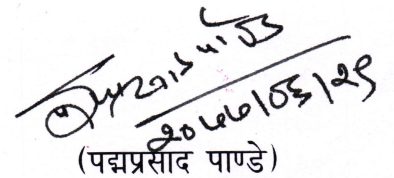 २०७७|०६|२९
(पद्मप्रसाद पाण्डे)